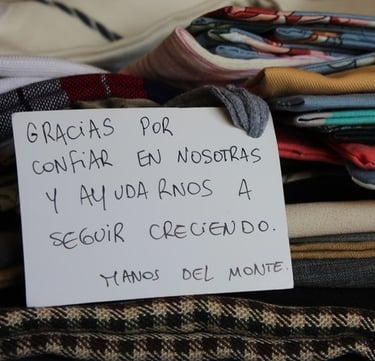 GRACIAS POR
CONFIAR EN NOSOTRAS
Y AYUDARNOS A
SEGUIR CRECIENDO.
MANOS DEL MONTE.